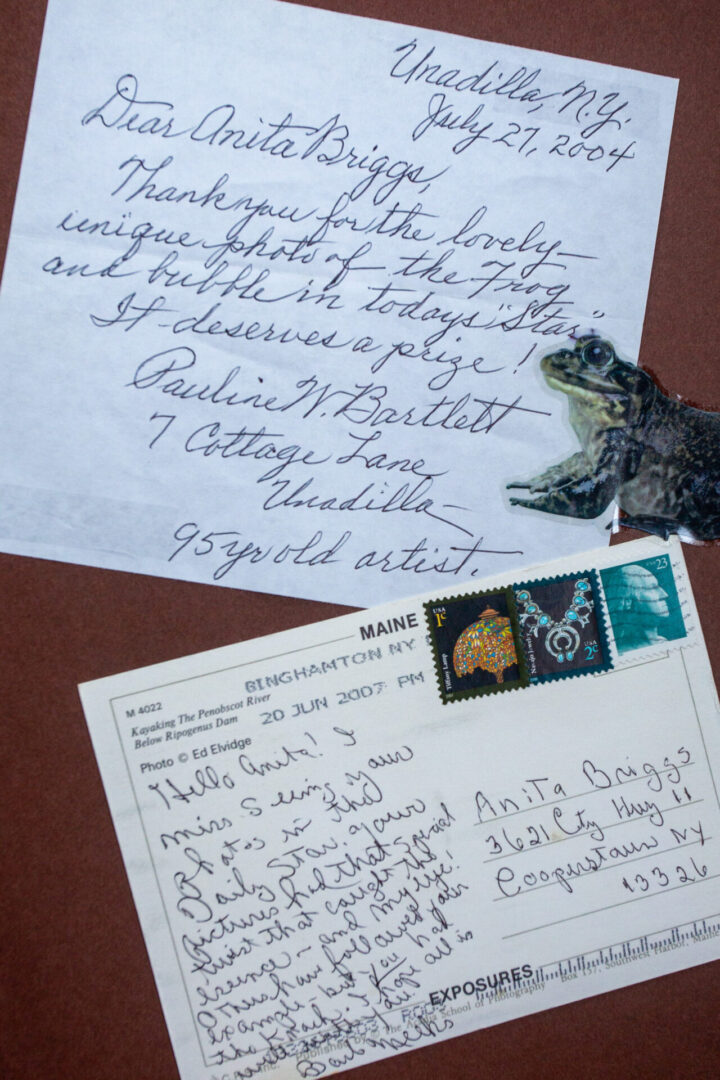 Unadilla, N.Y.
July 27, 2004
Dear Anita Briggs,
Thank you for the lovely—
unique photo of the Frog
and bubble in todays "Star"
It deserves a prize!
Pauline W. Bartlett
7 Cottage Lane
Unadilla—
95 yr old artist.
MAINE
BINGHAMTON NY
20 JUN 2007 PM
USA
1¢
Tiffany Lamp
USA
2¢
Navajo Jewelry
USA 23
M 4022
Kayaking The Penobscot River
Below Ripogenus Dam
Photo © Ed Elvidge
Hello Anita! I
miss seeing your
Photos in the
Daily Star. Your
pictures had that special
twist that caught the
essence - and my eye!
Others have followed your
example - but you had
the knack. I hope all is
you.
Barb
Anita Briggs
3621 Cty Hwy 11
Cooperstown NY
13326
EXPOSURES
Published by The School of Photography Box 157, Southwest Harbor, Maine